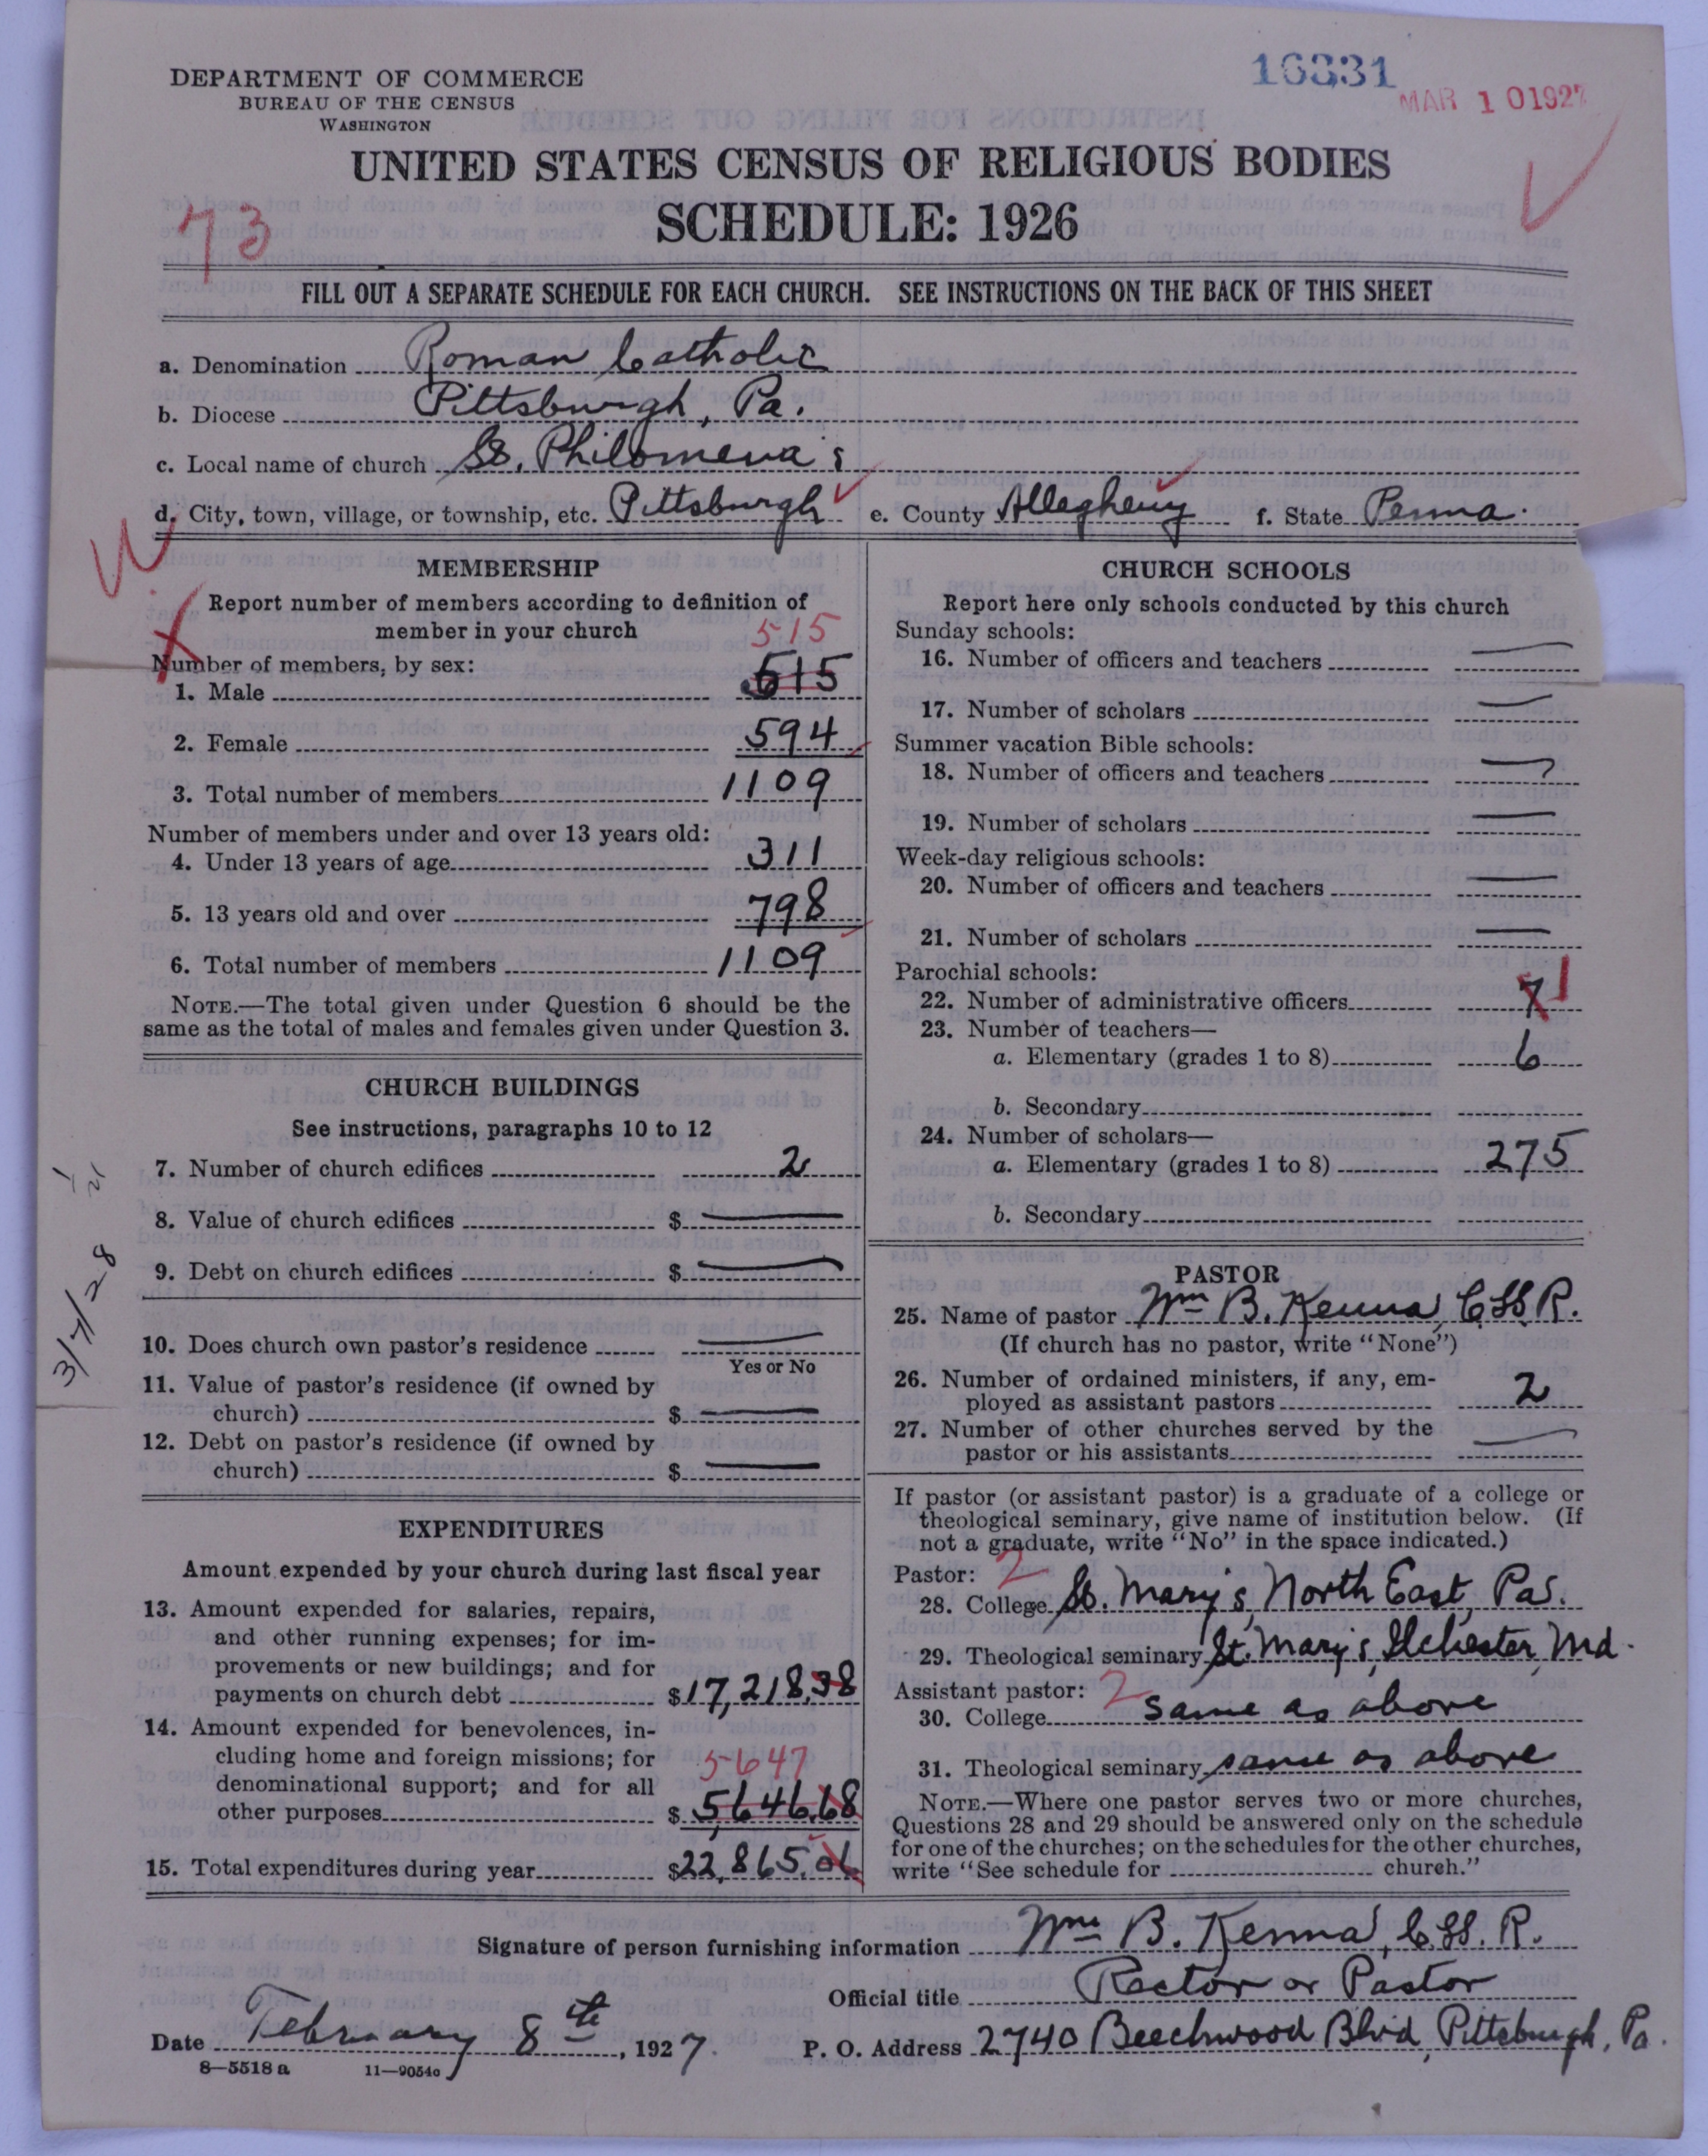 DEPARTMENT OF COMMERCE
BUREAU OF THE CENSUS
WASHINGTON
16331
MAR 10 1927
UNITED STATES CENSUS OF RELIGIOUS BODIES
SCHEDULE: 1926
73
FILL OUT A SEPARATE SCHEDULE FOR EACH CHURCH. SEE INSTRUCTIONS ON THE BACK OF THIS SHEET
a. Denomination Roman Catholic
b. Diocese Pittsburgh, Pa.
c. Local name of church St. Philomena's
d. City, town, village, or township, etc. Pittsburgh e. County Allegheny f. State Penna.
MEMBERSHIP
Report number of members according to definition of
member in your church
515
Number of members, by sex:
1. Male 515
2. Female 594
3. Total number of members 1109
Number of members under and over 13 years old:
4. Under 13 years of age 311
5. 13 years old and over 798
6. Total number of members 1109
NOTE.—The total given under Question 6 should be the
same as the total of males and females given under Question 3.
CHURCH BUILDINGS
See instructions, paragraphs 10 to 12
7. Number of church edifices 2
8. Value of church edifices $
9. Debt on church edifices $
10. Does church own pastor's residence
Yes or No
11. Value of pastor's residence (if owned by
church) $
12. Debt on pastor's residence (if owned by
church) $
3/7/28
EXPENDITURES
Amount expended by your church during last fiscal year
13. Amount expended for salaries, repairs,
and other running expenses; for im-
provements or new buildings; and for
payments on church debt $17,218.38
14. Amount expended for benevolences, in-
cluding home and foreign missions; for
5647
denominational support; and for all
other purposes $5,646.68
15. Total expenditures during year $22,865.06
CHURCH SCHOOLS
Report here only schools conducted by this church
Sunday schools:
16. Number of officers and teachers
17. Number of scholars
Summer vacation Bible schools:
18. Number of officers and teachers
19. Number of scholars
Week-day religious schools:
20. Number of officers and teachers
21. Number of scholars
Parochial schools:
22. Number of administrative officers 7 1
23. Number of teachers—
a. Elementary (grades 1 to 8) 6
b. Secondary
24. Number of scholars—
a. Elementary (grades 1 to 8) 275
b. Secondary
PASTOR
25. Name of pastor Wm B. Kenna, C.SS.R.
(If church has no pastor, write "None")
26. Number of ordained ministers, if any, em-
ployed as assistant pastors 2
27. Number of other churches served by the
pastor or his assistants
If pastor (or assistant pastor) is a graduate of a college or
theological seminary, give name of institution below. (If
not a graduate, write "No" in the space indicated.)
Pastor: 2
28. College St. Mary's, North East, Pa.
29. Theological seminary St. Mary's, Ilchester, Md.
Assistant pastor: 2
30. College same as above
31. Theological seminary same as above
NOTE.—Where one pastor serves two or more churches,
Questions 28 and 29 should be answered only on the schedule
for one of the churches; on the schedules for the other churches,
write "See schedule for church."
Signature of person furnishing information Wm B. Kenna, C.SS.R.
Official title Rector or Pastor
Date February 8th, 1927. P. O. Address 2740 Beechwood Blvd, Pittsburgh, Pa.
8—5518 a 11—9054a